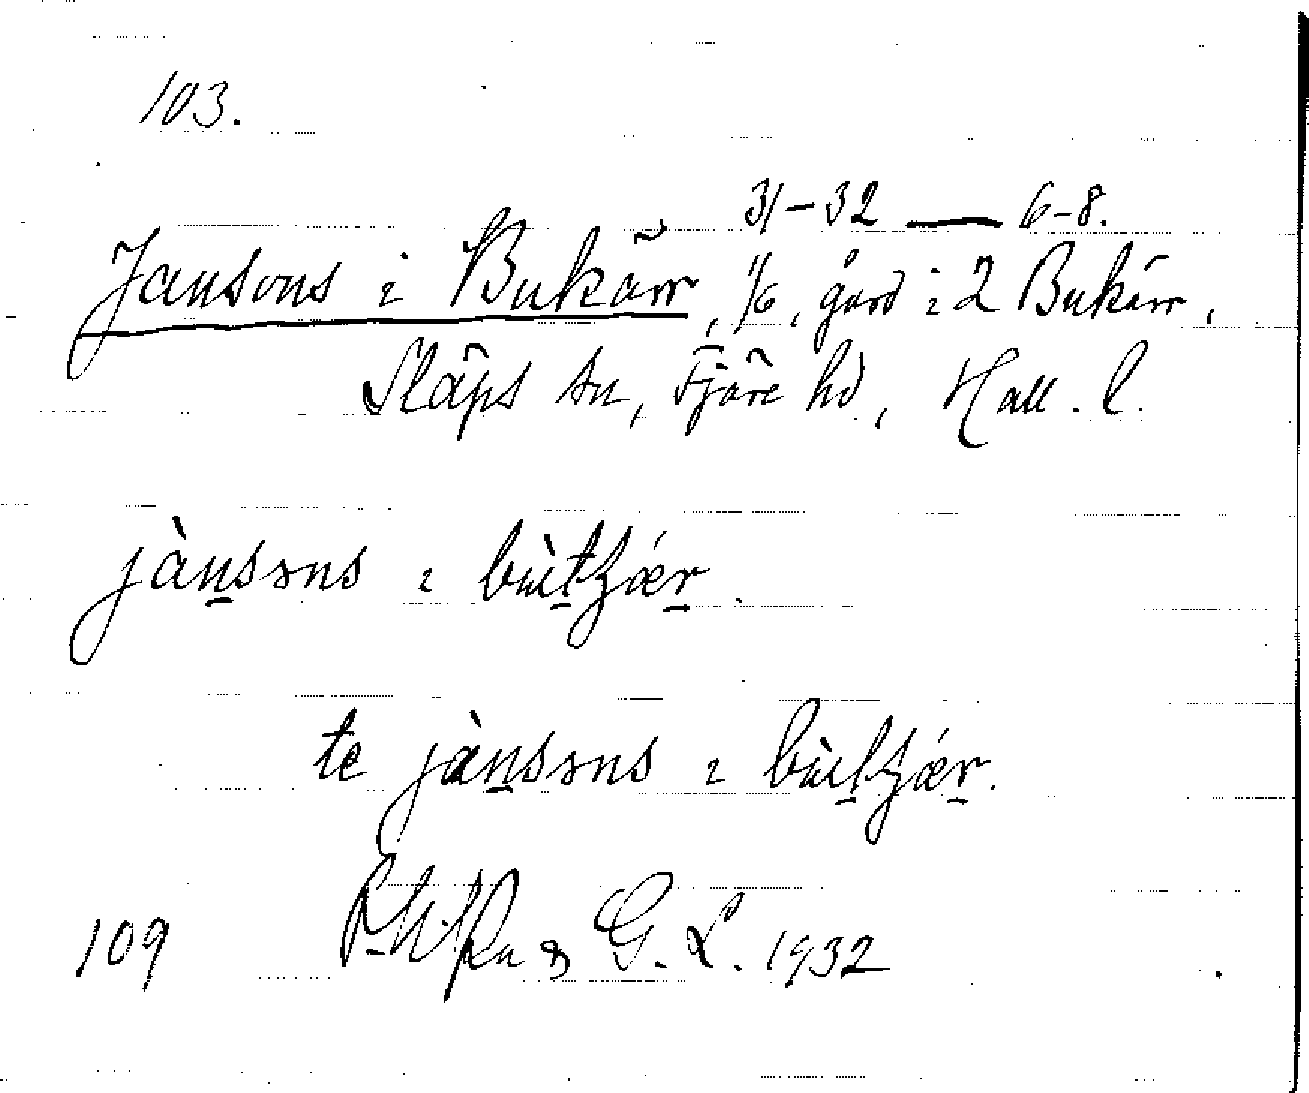 103.
31-32 — 6-8.
Jansons i Bukärr, 1/6, gård i 2 Bukärr,
Släps sn, Fjäre hd, Hall. l.
jànsɔns ɩ
te jànsɔns ɩ
109 & G. L. 1932